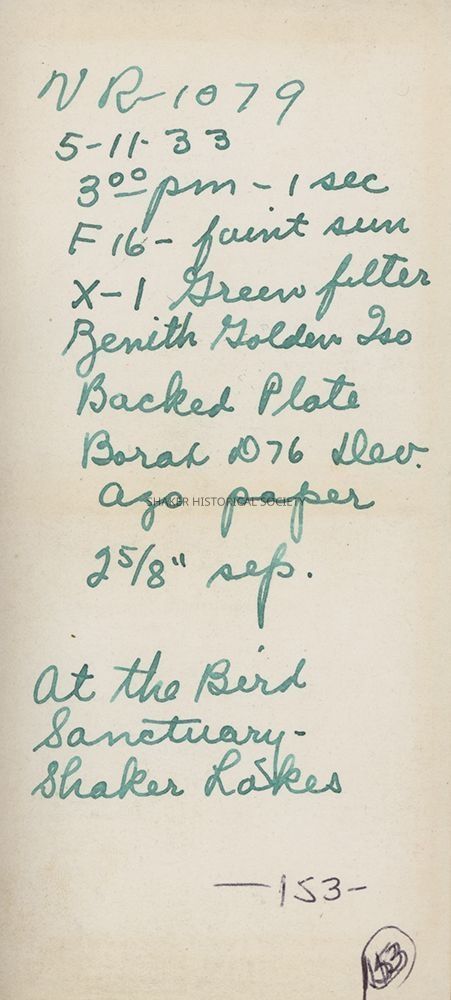 NR-1079
5-11-33
3⁰⁰ pm - 1 sec
F16 - faint sun
X-1 Green filter
Zenith Golden Iso
Backed Plate
Borax D76 Dev.
Azo paper
SHAKER HISTORICAL SOCIETY
2 5/8" sep.
At the Bird
Sanctuary-
Shaker Lakes
-153-
153